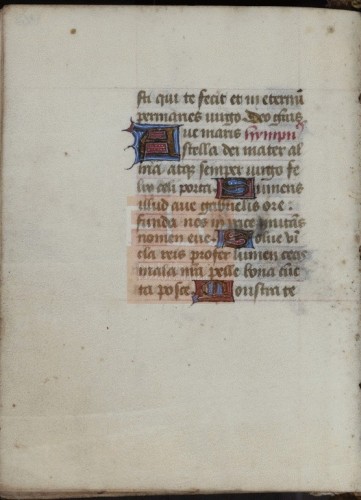 sti qui te fecit et in eternū
permanes uirgo Deo grās
Aue maris hympnꝰ
stella dei mater al
ma atqꝫ semper uirgo fe
lix celi porta Sumens
illud aue gabrielis ore
funda nos in pace mutās
nomen eue Solue vī
cla reis profer lumen cecis
mala nrā pelle bona cūc
ta posce Monstra te